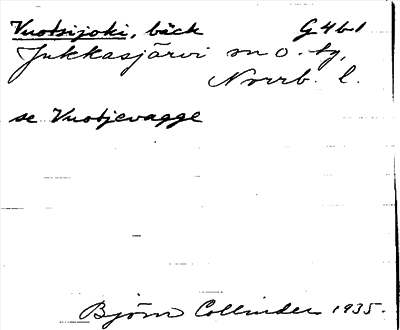 Vuotsijoki, bäck G4b1
Jukkasjärvi sn o. tg,
Norrb. l.
se Vuotjevagge
Björn Collinder 1935.